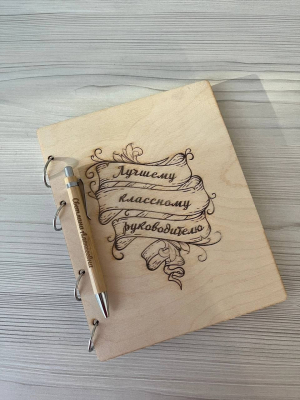 Лучшему
классному
руководителю